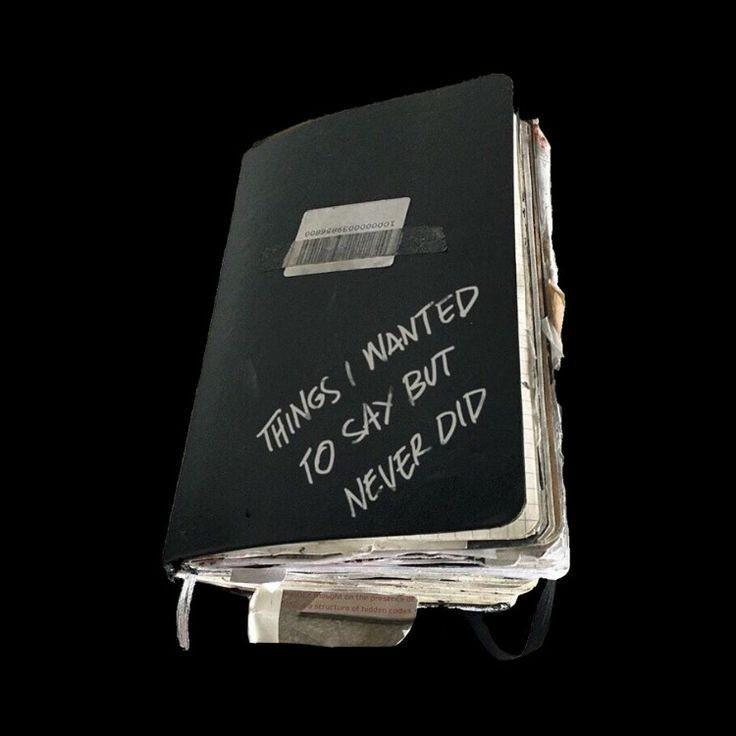 10000000039856800
THINGS I WANTED
TO SAY BUT
NEVER DID
thought on the presence of
a structure of hidden codes